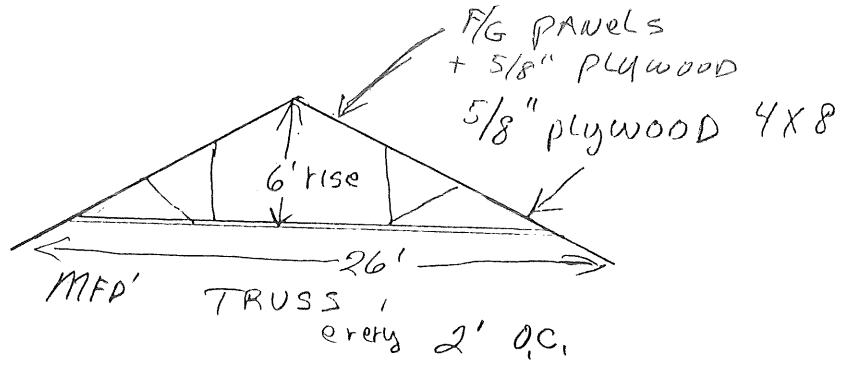 F/G PANELS
+ 5/8" PLYWOOD
5/8" PLYWOOD 4X8
6' rise
26'
MFD' TRUSS
every 2' O.C.